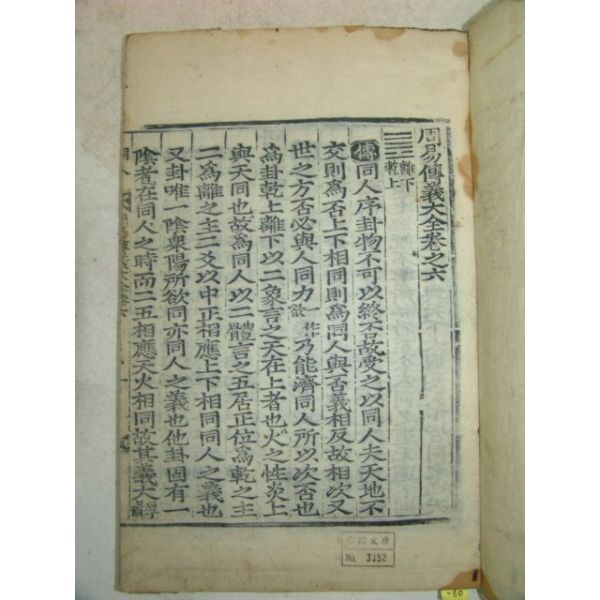 周易傳義大全卷之六
離下
乾上
傳同人序卦物不可以終否故受之以同人夫天地不
交則爲否上下相同則爲同人與否義相反故相次又
世之方否必與人同力一作欲乃能濟同人所以次否也
爲卦乾上離下以二象言之天在上者也火之性炎上
與天同也故爲同人以二體言之五居正位爲乾之主
二爲離之主二爻以中正相應上下相同同人之義也
又卦唯一陰衆陽所欲同亦同人之義也他卦固有一
陰者在同人之時而二五相應天火相同故其義大
文庫
No. 3392
-60